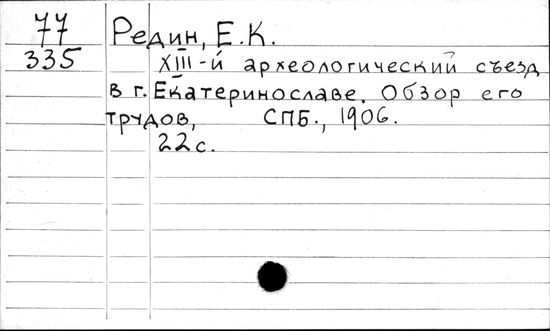 77 Редин, Е.К.
335 XIII-й археологический съезд
в г. Екатеринославе. Обзор его
трудов, СПБ., 1906.
22 с.